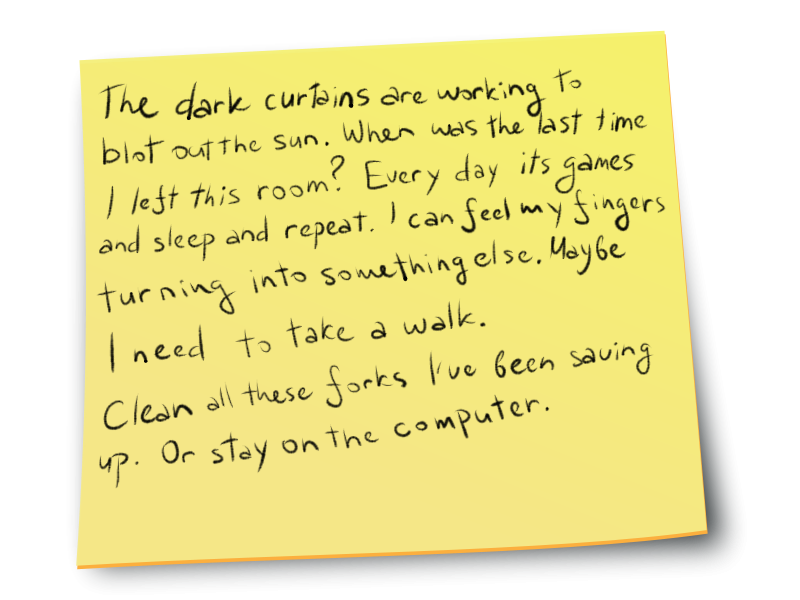 The dark curtains are working to
blot out the sun. When was the last time
I left this room? Every day its games
and sleep and repeat. I can feel my fingers
turning into something else. Maybe
I need to take a walk.
Clean all these forks I've been saving
up. Or stay on the computer.